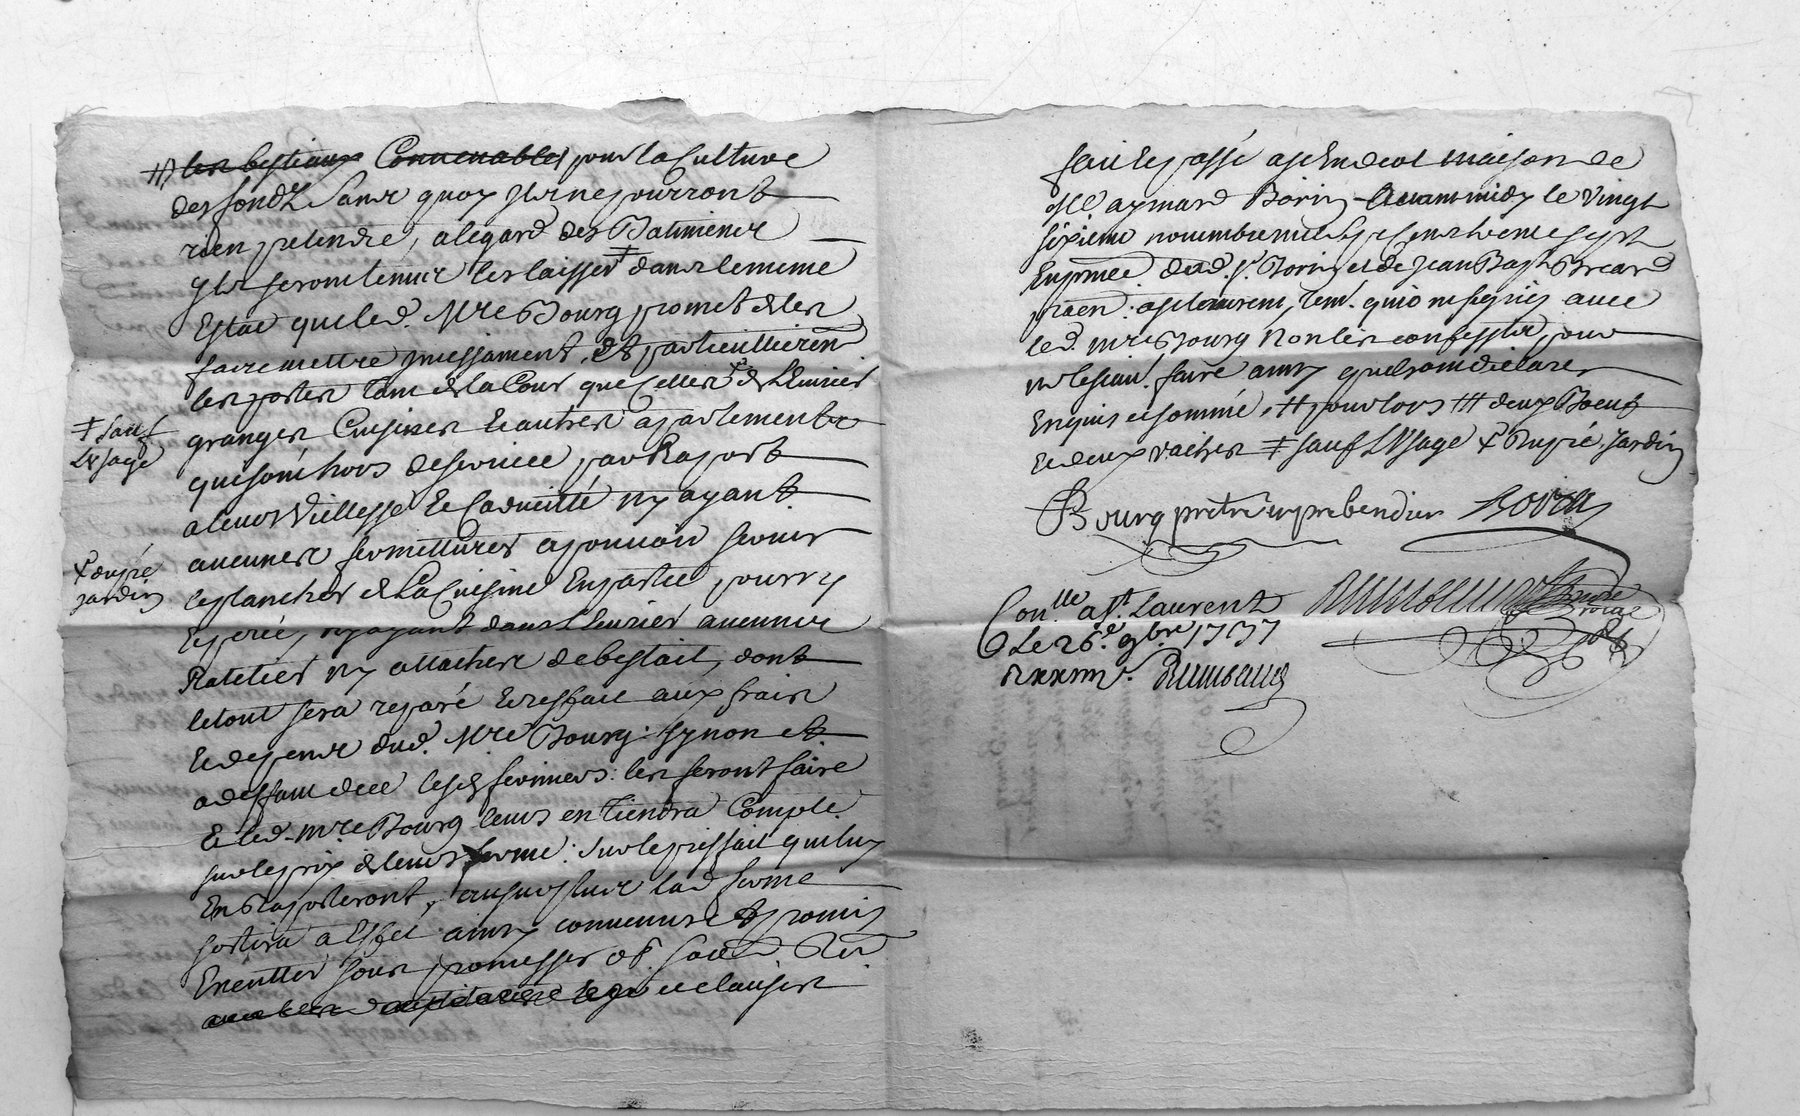 #) les bestiaux Convenables pour la Culture
des fondz Sans quoy Ils ne pourront
rien pretendre, a legard des Batimens
Ils seront tenus les laisser ‡ dans le meme
Estat que led. Mre Bourg promet de les
faire mettre Incessament, et particullierem
les portes tant de la Cour que Celles ₵ de L'Ecurier
granges Cuisines Et autres apartements
‡ sauf
L'Usage
qui sont hors de service par Raport
a leurs Viellesse Et Caducitté ny ayant
aucunes fermettures a pouvoir servir
₵ du pré
jardin
le plancher de La Cuisine En partie pourry
Et percé, ny ayant dans L'Ecurier aucunes
Ratelier ny attaches de bestail, dont
le tout sera reparé Et reffait aux frais
Et depens dud. Mre Bourg: synon et
a deffaut de ce lesd. fermiers: les feront faire
Et led. Mre Bourg leurs en tiendra Compte
sur le prix de leurs ferme: sur le prisfait quils luy
En Raporteront,
sortira a Effet ainsy convenus Et promis
En entter sous promesses ob.
et clauses
fait Et passé a St Laurent maison de
Me aymard Borin avant midy le vingt
sixieme novembre mil sept cens trente sept
En prnce dud. Sr. Borin et de Jean Bapt. Brcard
praen: a St Laurent, tem. qui ont signés avec
led. Mre Bourg non les confessts pour
ne le scav. faire ainsy quils ont declarer
Enquis et sommé, # pour lors ### deux Boeufs
Et deux vaches ‡ sauf L'Usage ₵ Du pré jardin
Bourg prêtre Borin
Conlle a St Laurent
Le 26e 9bre 1737